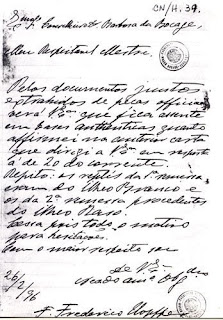 CN/H. 39.
Barbosa du Bocage,
Meu Respeitavel Mestre.
Pelos documentos juntos
extrahidos de peças officiaes
verá V.Exª que fica assente
em bases authenticas quanto
affirmei na anterior carta
que dirigi a V.Exª em resposta
á de 20 do corrente.
Repito: os reptis da 1ª remessa
eram do Ilheo Branco e
os da 2ª remessa procedentes
do Ilheo Raso.
para hesitações.
Com o maior respeito sou
De V. Exª
26/2/96
F. Frederico Hopffer